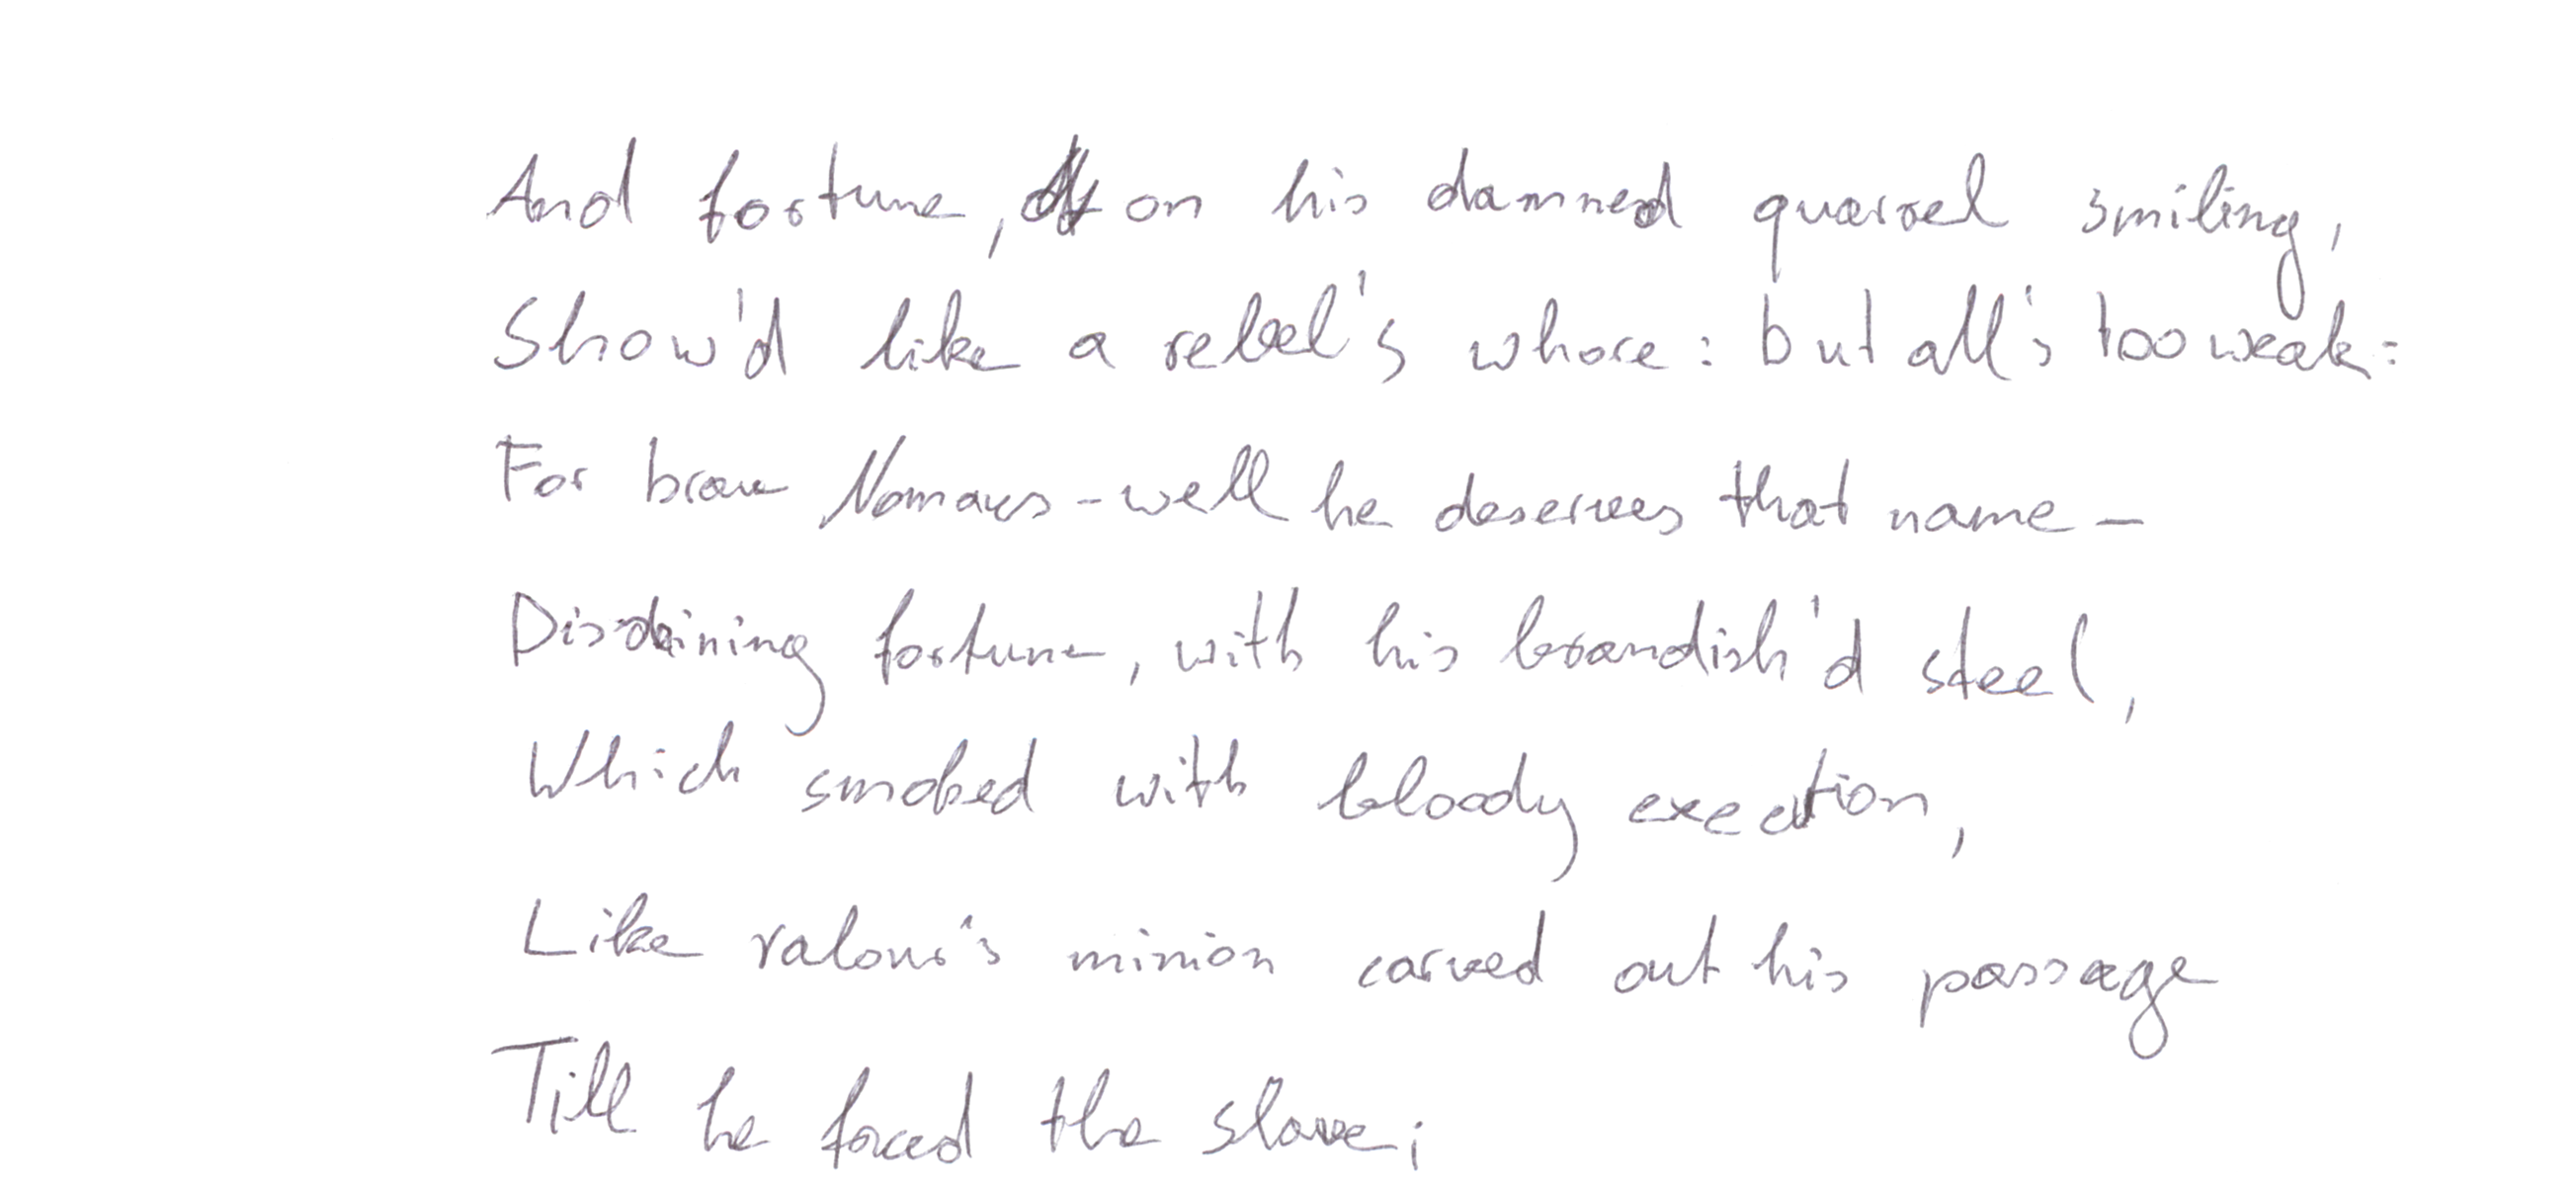 And fortune, on his damned quarrel smiling,
Show'd like a rebel's whore: but all's too weak:
For brave Nomaws - well he deserves that name -
Disdaining fortune, with his brandish'd steel,
Which smoked with bloody execution,
Like valour's minion carved out his passage
Till he forced the slave;